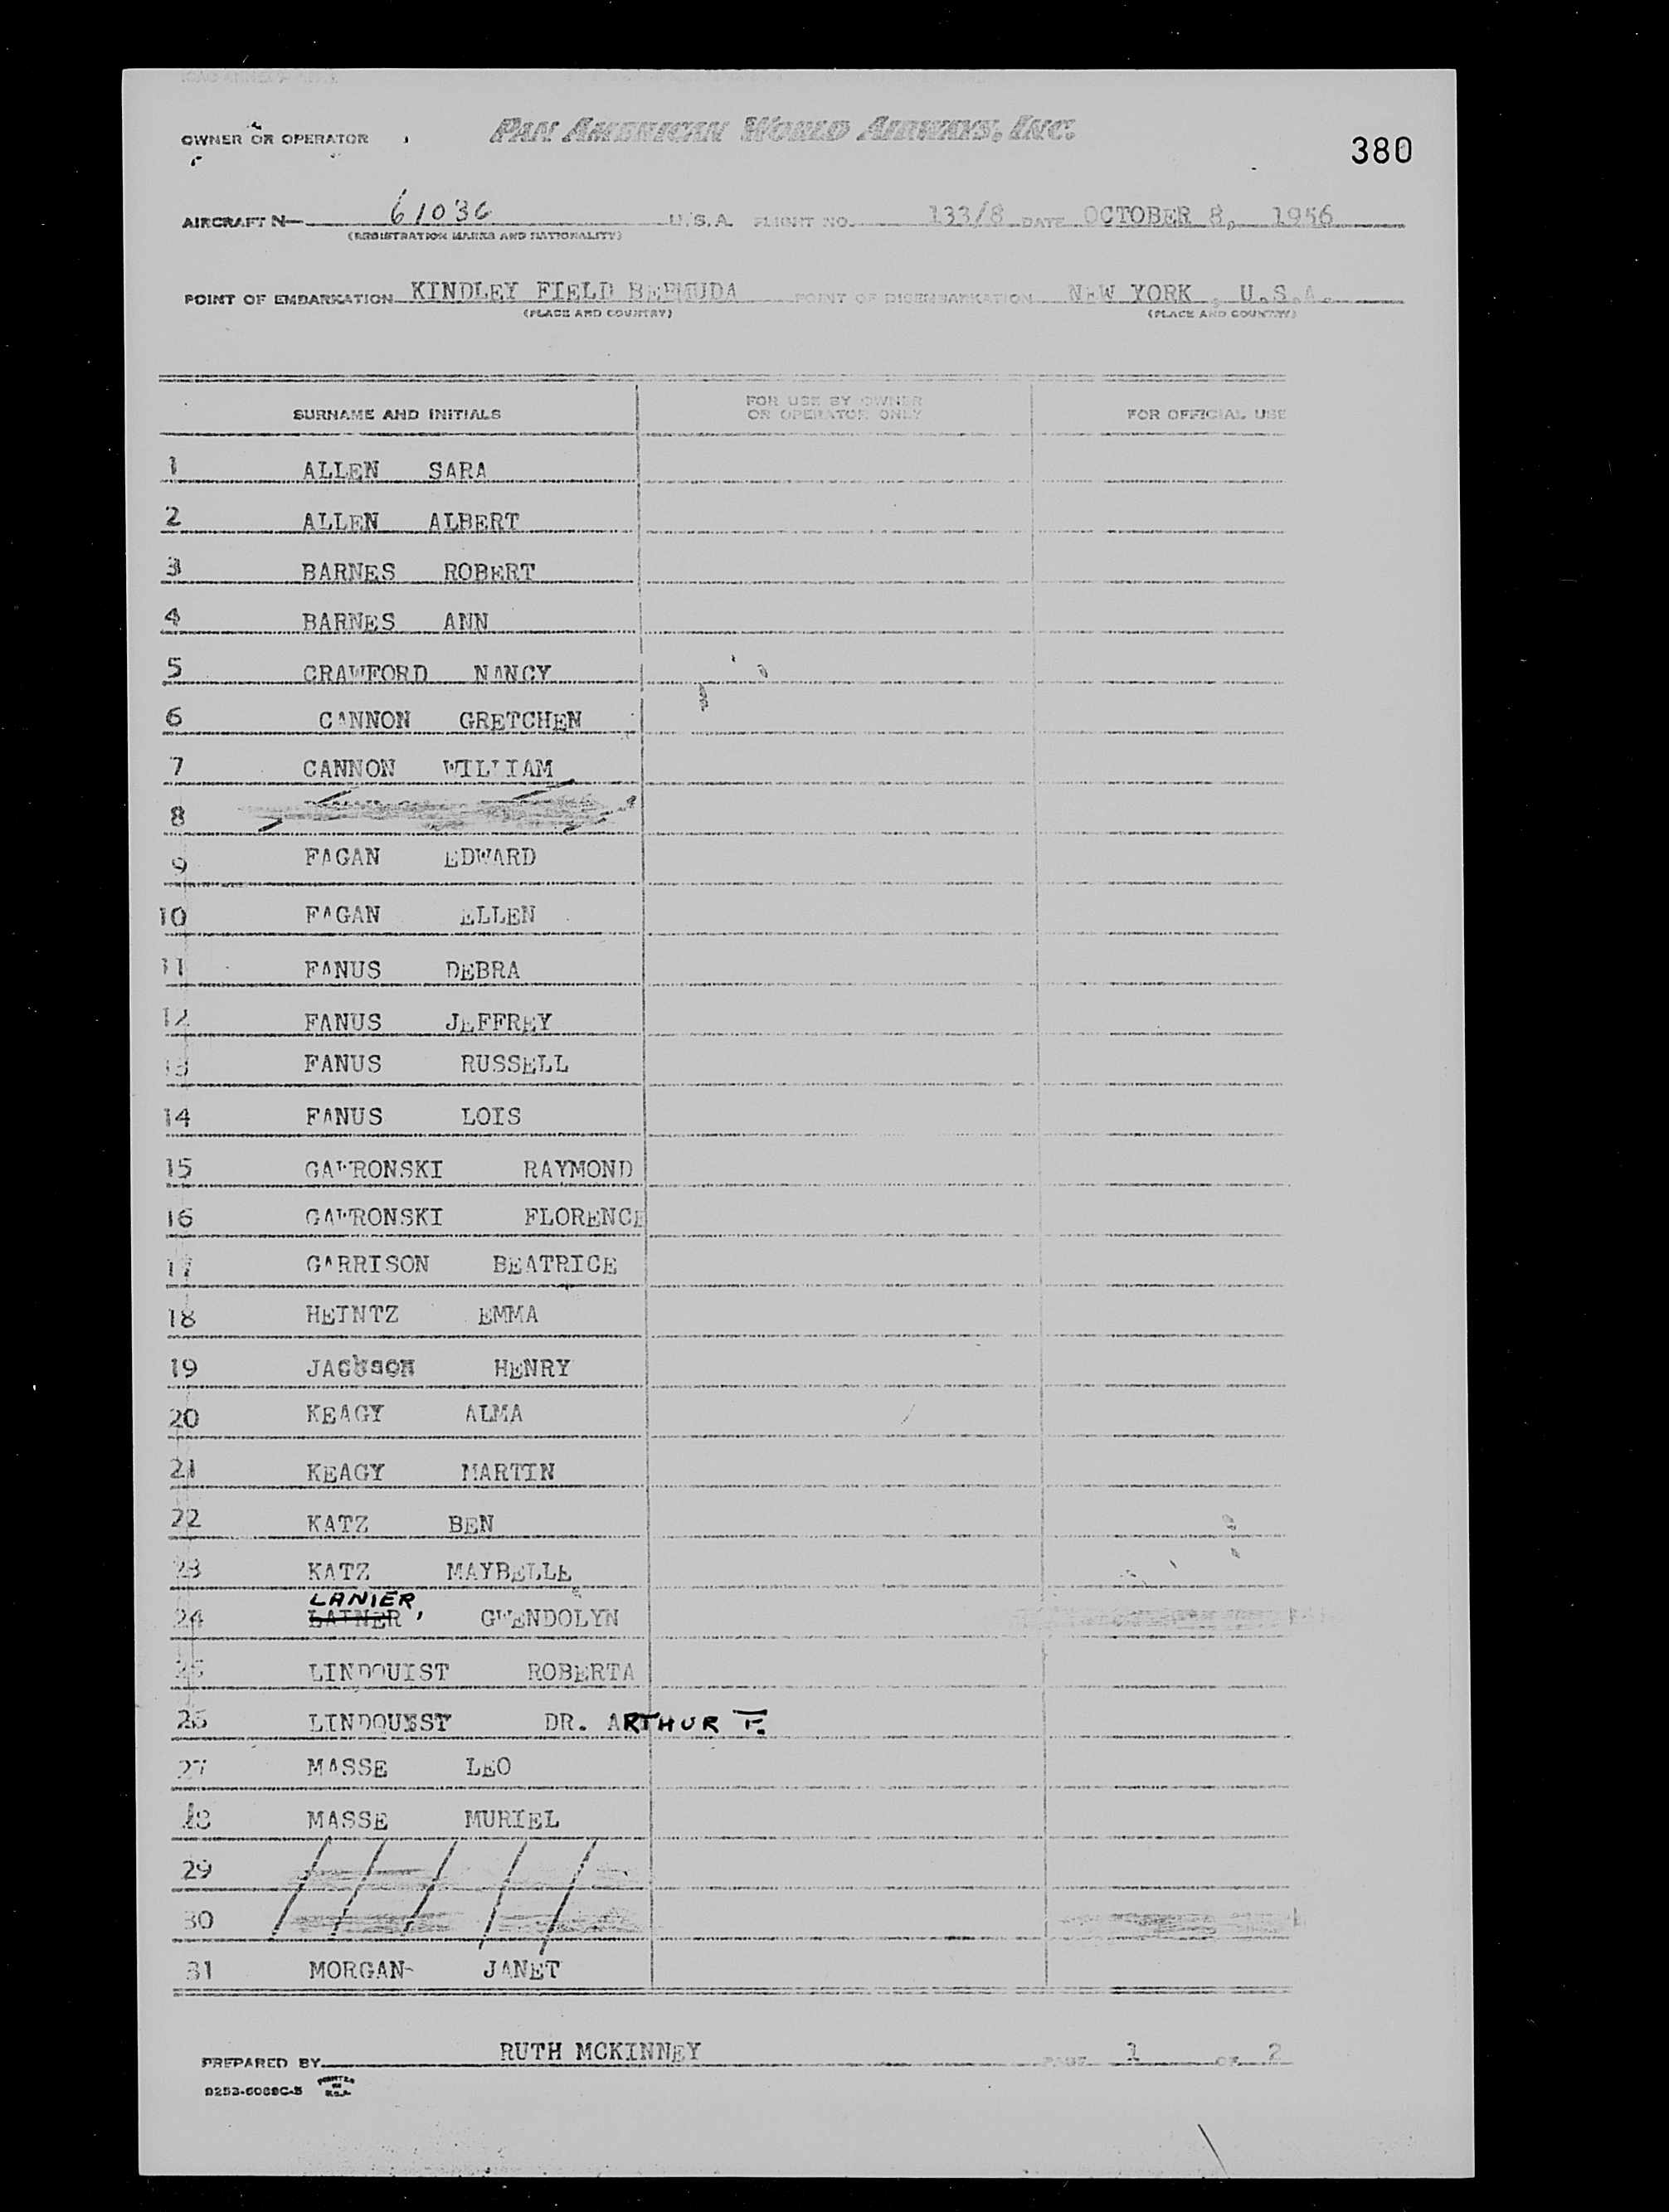 OWNER OR OPERATOR PAN AMERICAN WORLD AIRWAYS, INC.
380
AIRCRAFT N— 61036 U.S.A. FLIGHT NO. 133/8 DATE OCTOBER 8, 1956
(REGISTRATION MARKS AND NATIONALITY)
POINT OF EMBARKATION KINDLEY FIELD BERMUDA POINT OF DISEMBARKATION NEW YORK , U.S.A.
(PLACE AND COUNTRY) (PLACE AND COUNTRY)
SURNAME AND INITIALS FOR USE BY OWNER OR OPERATOR ONLY FOR OFFICIAL USE
1 ALLEN SARA
2 ALLEN ALBERT
3 BARNES ROBERT
4 BARNES ANN
5 CRAWFORD NANCY
6 CANNON GRETCHEN
7 CANNON WILLIAM
8
9 FAGAN EDWARD
10 FAGAN ELLEN
11 FANUS DEBRA
12 FANUS JEFFREY
13 FANUS RUSSELL
14 FANUS LOIS
15 GAWRONSKI RAYMOND
16 GAWRONSKI FLORENCE
17 GARRISON BEATRICE
18 HEINTZ EMMA
19 JACKSON HENRY
20 KEAGY ALMA
21 KEAGY MARTIN
22 KATZ BEN
23 KATZ MAYBELLE
LANIER,
24 LATNER GWENDOLYN
25 LINDQUIST ROBERTA
26 LINDQUEST DR. ARTHUR F.
27 MASSE LEO
28 MASSE MURIEL
29
30
31 MORGAN- JANET
PREPARED BY RUTH MCKINNEY PAGE 1 OF 2
9253-6089C-5 PRINTED IN U.S.A.